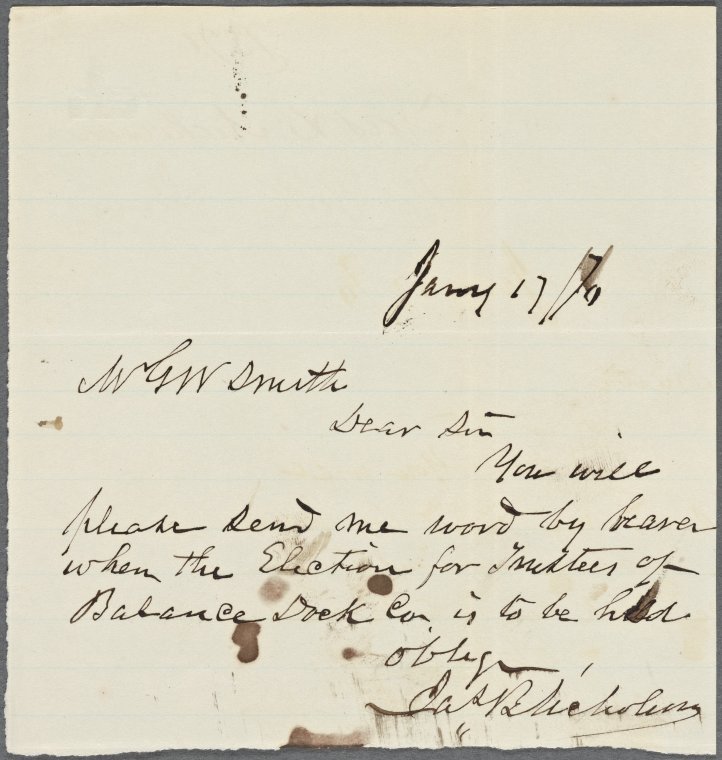 Jany 17/70
Mr G W Smith
Dear Sir
You will
please send me word by bearer
when the Election for Trustees of
Balance Dock Co. is to be held
oblige
Jas B Nicholson